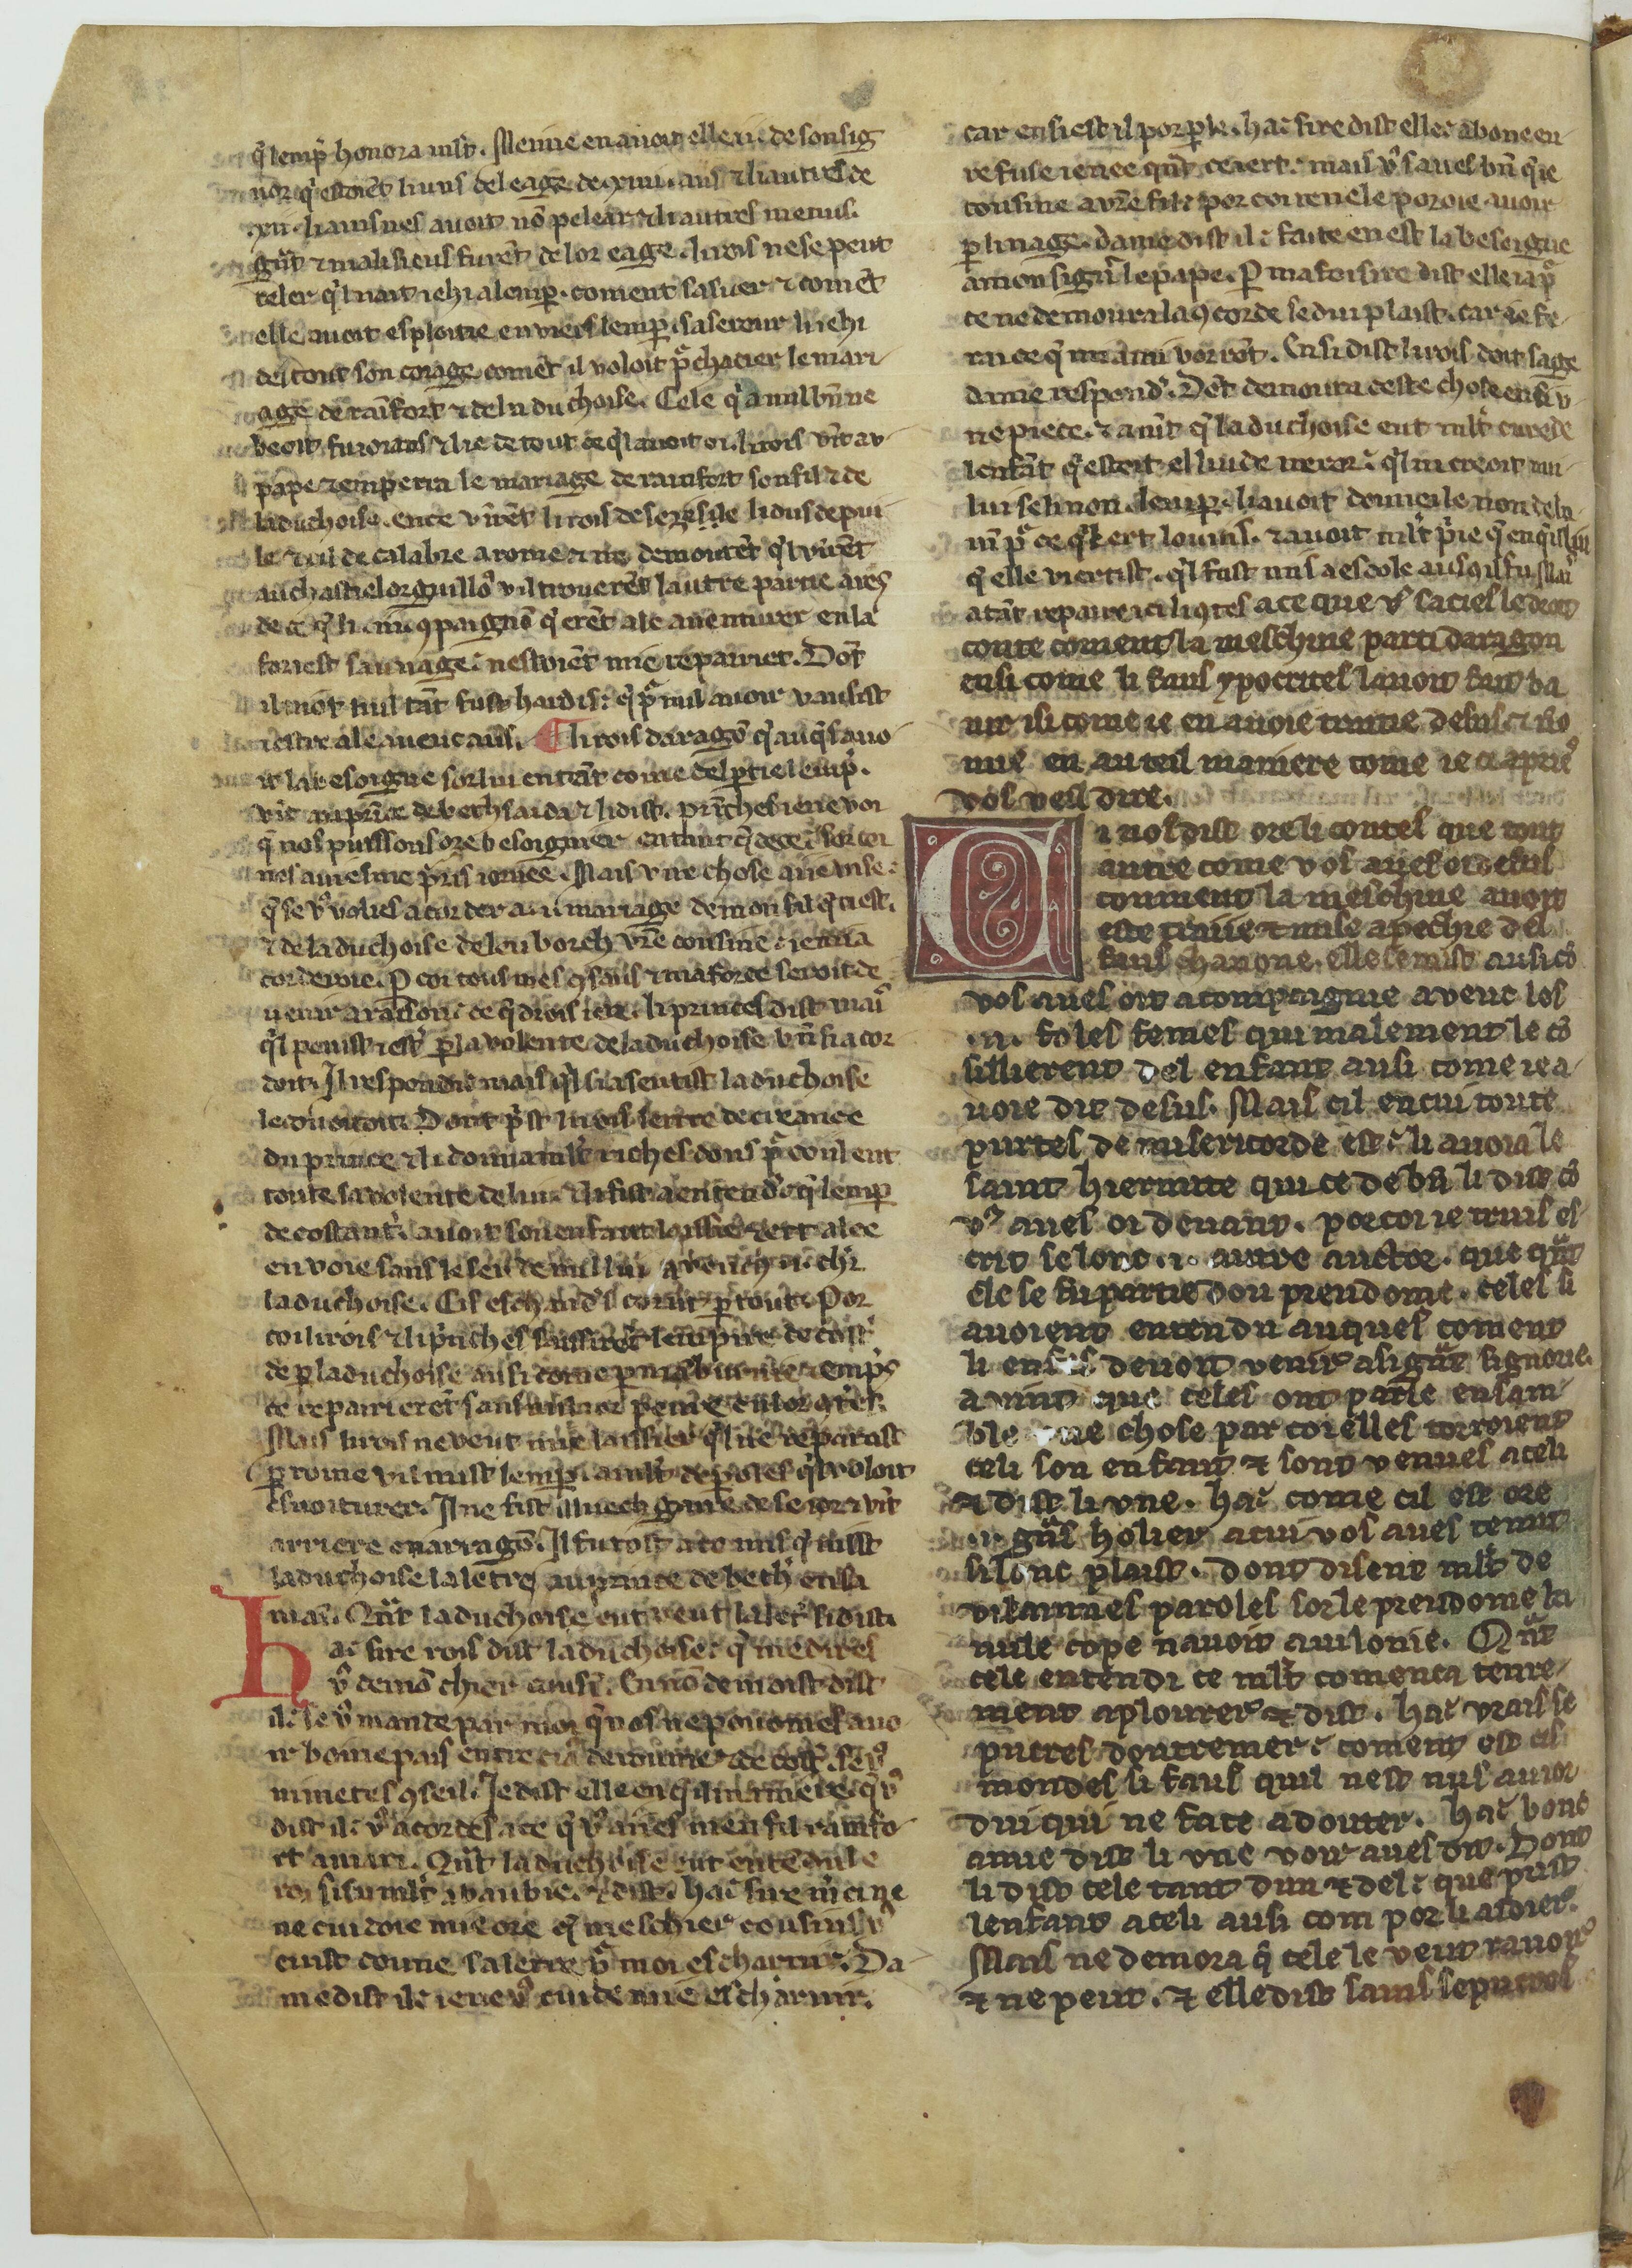 q̄ lemp̄ honora mlt̄. Meime en auoit elle .ii. de son sig
nor q̄ estoiēt li uns del eage de .xiiii. ans ⁊ li autres de
.xii. li ainsnes auoit nō pelear ⁊ li autres
gūt ⁊ malisieus furēt de lor eage. li rois ne se peut
celer q̄l nait iehi a lemp̄. coment sa suer ⁊ comēt
elle auoit esploitie enuiers lemp̄. sa sereur li iehi
del tout son corage. comēt il voloit p̄chacier le mari
age de rainfort ⁊ de la duchoise. Cele q̄ a nul bn̄ ne
beoit. fu ioians ⁊ lie de tout ce q̄l auoit oi. li rois vīt au
pape ⁊ empetra le mariage de rainfort son fil ⁊ de
la duchoise. en ce vīrēt li rois de sezesile li dus de pui
le ⁊ cil de calabre a rome ⁊ ne demourēt q̄l vīrēt
au chastiel orguillo⁹ v il trouerēt lautre partie
de ce q̄ li .iiii. 9paignō q̄ erēt ale auenturer en la
foriest sauuage. nestoiēt mie repairiet. Dōt
il not nul tāt fust hardis: q̄ p̄ nul auoir vausist
iestre ale auenc aus. li rois daragō q̄ auq̄s auo
it la besoigne sor lui entāt come del p̄tie lemp̄.
vīt au prīce de bethsaida ⁊ li dist. prīches ie ne voi
q̄ nos puissons ore besoignier
nes auiesme p̄ris iornee. Mais vne chose
q̄ se v⁹ volies acorder a .i. mariage de mon fil q̄ ci est.
⁊ de la duchoise de lenborch vr̄e cousine
corderoie. P̄ coi tous mes 9saus ⁊ ma force seroit de
uenir a raison: ce q̄ drois iert. li princes dist
q̄l peuist iestr̄ p̄ la volente de la duchoise bn̄ si acor
doit. Il respondi mais q̄l si asentist la duchoise
le Dont p̄st li rois letre de creance
du prince ⁊ li donna mlt̄ riches dons p̄
toute sa volente de lui. ⁊ li fist a entendr̄ q̄ lemp̄
de costant̄. auoit son enfant laissie ⁊ ert alee
en voie sans le seu de nullui
la duchoise. p̄ tout. Por
coi li rois ⁊ li p̄nches laissirēt lempire de cōst̄.
de p̄ la duchoise ausi come
ce repairierēt sans
Mais li rois ne veut mie laissier q̄l ne repairast
p̄ rome v il mist lemp̄ a mlt̄ de paroles q̄l voloit
Il ne fist de seior ⁊ vīt
arriere en arragō. Il fu tost
la duchoise la letre au prince de beth̄
Q̄nt la duchoise eut veut la letr̄ si dist.
ha: sire rois dist la duchoise: q̄ me dites
v⁹ de mō chier cousī. En nō de dist
il: se v⁹ mande par moi q̄ nos ne poiiomes auo
ir boine pais entre ciaus de roume ⁊ de cōst̄. se v⁹
ni metes 9seil. Ie dist elle en q̄l maniere: q̄ v⁹
dist il: v⁹ acordes a ce q̄ v⁹ aies men fil rainfo
rt a mari. Q̄nt la duchoise eut entēdu le
roi si fu mlt̄ ⁊ dist. ha: sire
ne cuidoie mie ore q̄ mes chier cousins v⁹
euist doune sa letre p̄ moi escharnir. Da
me dist il: ie ne v⁹ cuide mie escharnir.
car ensi est il por p̄le. ha: sire dist elle:
refuse ie nee q̄nt ce iert. mais v⁹ saues bn̄ q̄ ie
cousine a vr̄e fil: por coi ie ne le poroie auoir
p̄ linage. dame dist il: faite en est la besoigne
a mon sign̄r le pape. P̄ ma foi sire dist elle ia p̄
ce ne demoura la 9corde se diu plaist. car ie fe
rai ce q̄ mi ami vorrōt. Ensi dist li rois doit sage
dame respondr̄. Dōt demoura ceste chose ensi v
ne piece. ⁊ auīt q̄ la duchoise eut mlt̄ cure de
lenfāt q̄ estoit el liu de
lui se li non. lemp̄. li auoit donnei le non
p̄ ce q̄l ert louuis. ⁊ auoit mlt̄ p̄ie
q̄ elle viertist. q̄l fust mis a escole
atāt repaire ici li 9tes a ce que v⁹ sacies le droit
conte coment la meschine parti daragon
ensi come li faus ypocrites lauoit fait ba
nir isi come ie en auoie traitie desus: ⁊ vo
mie en auteil maniere come ie ci apries
vos veil dire.
Ci nos dist ore li contes que tout
autre come vos aues oi desus
comment la meschine auoit
este traiie ⁊ mise a pechie del
faus chanone. elle se mist ausi cō
vos aues oit a compaignie auenc les
.ii. foles femes qui malement le cō
sillierent del enfant ausi come ie a
uoie dit desus. Mais cil en cui toute
purtes de misericorde est: li auoia le
saint hiermite qui ce de bn̄ li dist cō
v⁹ aues oi deuant. por coi ie truis es
crit selonc .i. autre auctor. que q̄nt
ele se fu partie dou preudome. celes si
auoient entendu auques coment
li enfes deuoit venir a signorie.
auint que celes ont parle ensam
ble une chose par coi elles torroient
celi son enfant ⁊ sont venues a celi
⁊ dist li vne. ha: come cil est ore
.i. grās holier a cui vos aues tenut
si lonc plait. dont disent mlt̄ de
vilainnes paroles sor le preudome ki
nule cope nauoit a vilonie. Q̄nt
cele entendi ce mlt̄ comenca tenre
ment a plourer ⁊ dist. ha: vrais se
pucres doutremer: coment est cis
mondes si faus quil nest nus au ior
dui qui ne face a douter. ha: bone
amie dist li vne voir aues dit. Dont
li dist cele tant dun ⁊ del: que prist
lenfant a celi ausi com por li aidier.
Mais ne demora q̄ cele le veut rauoir
⁊ ne peut. ⁊ elle dist sains sepucres